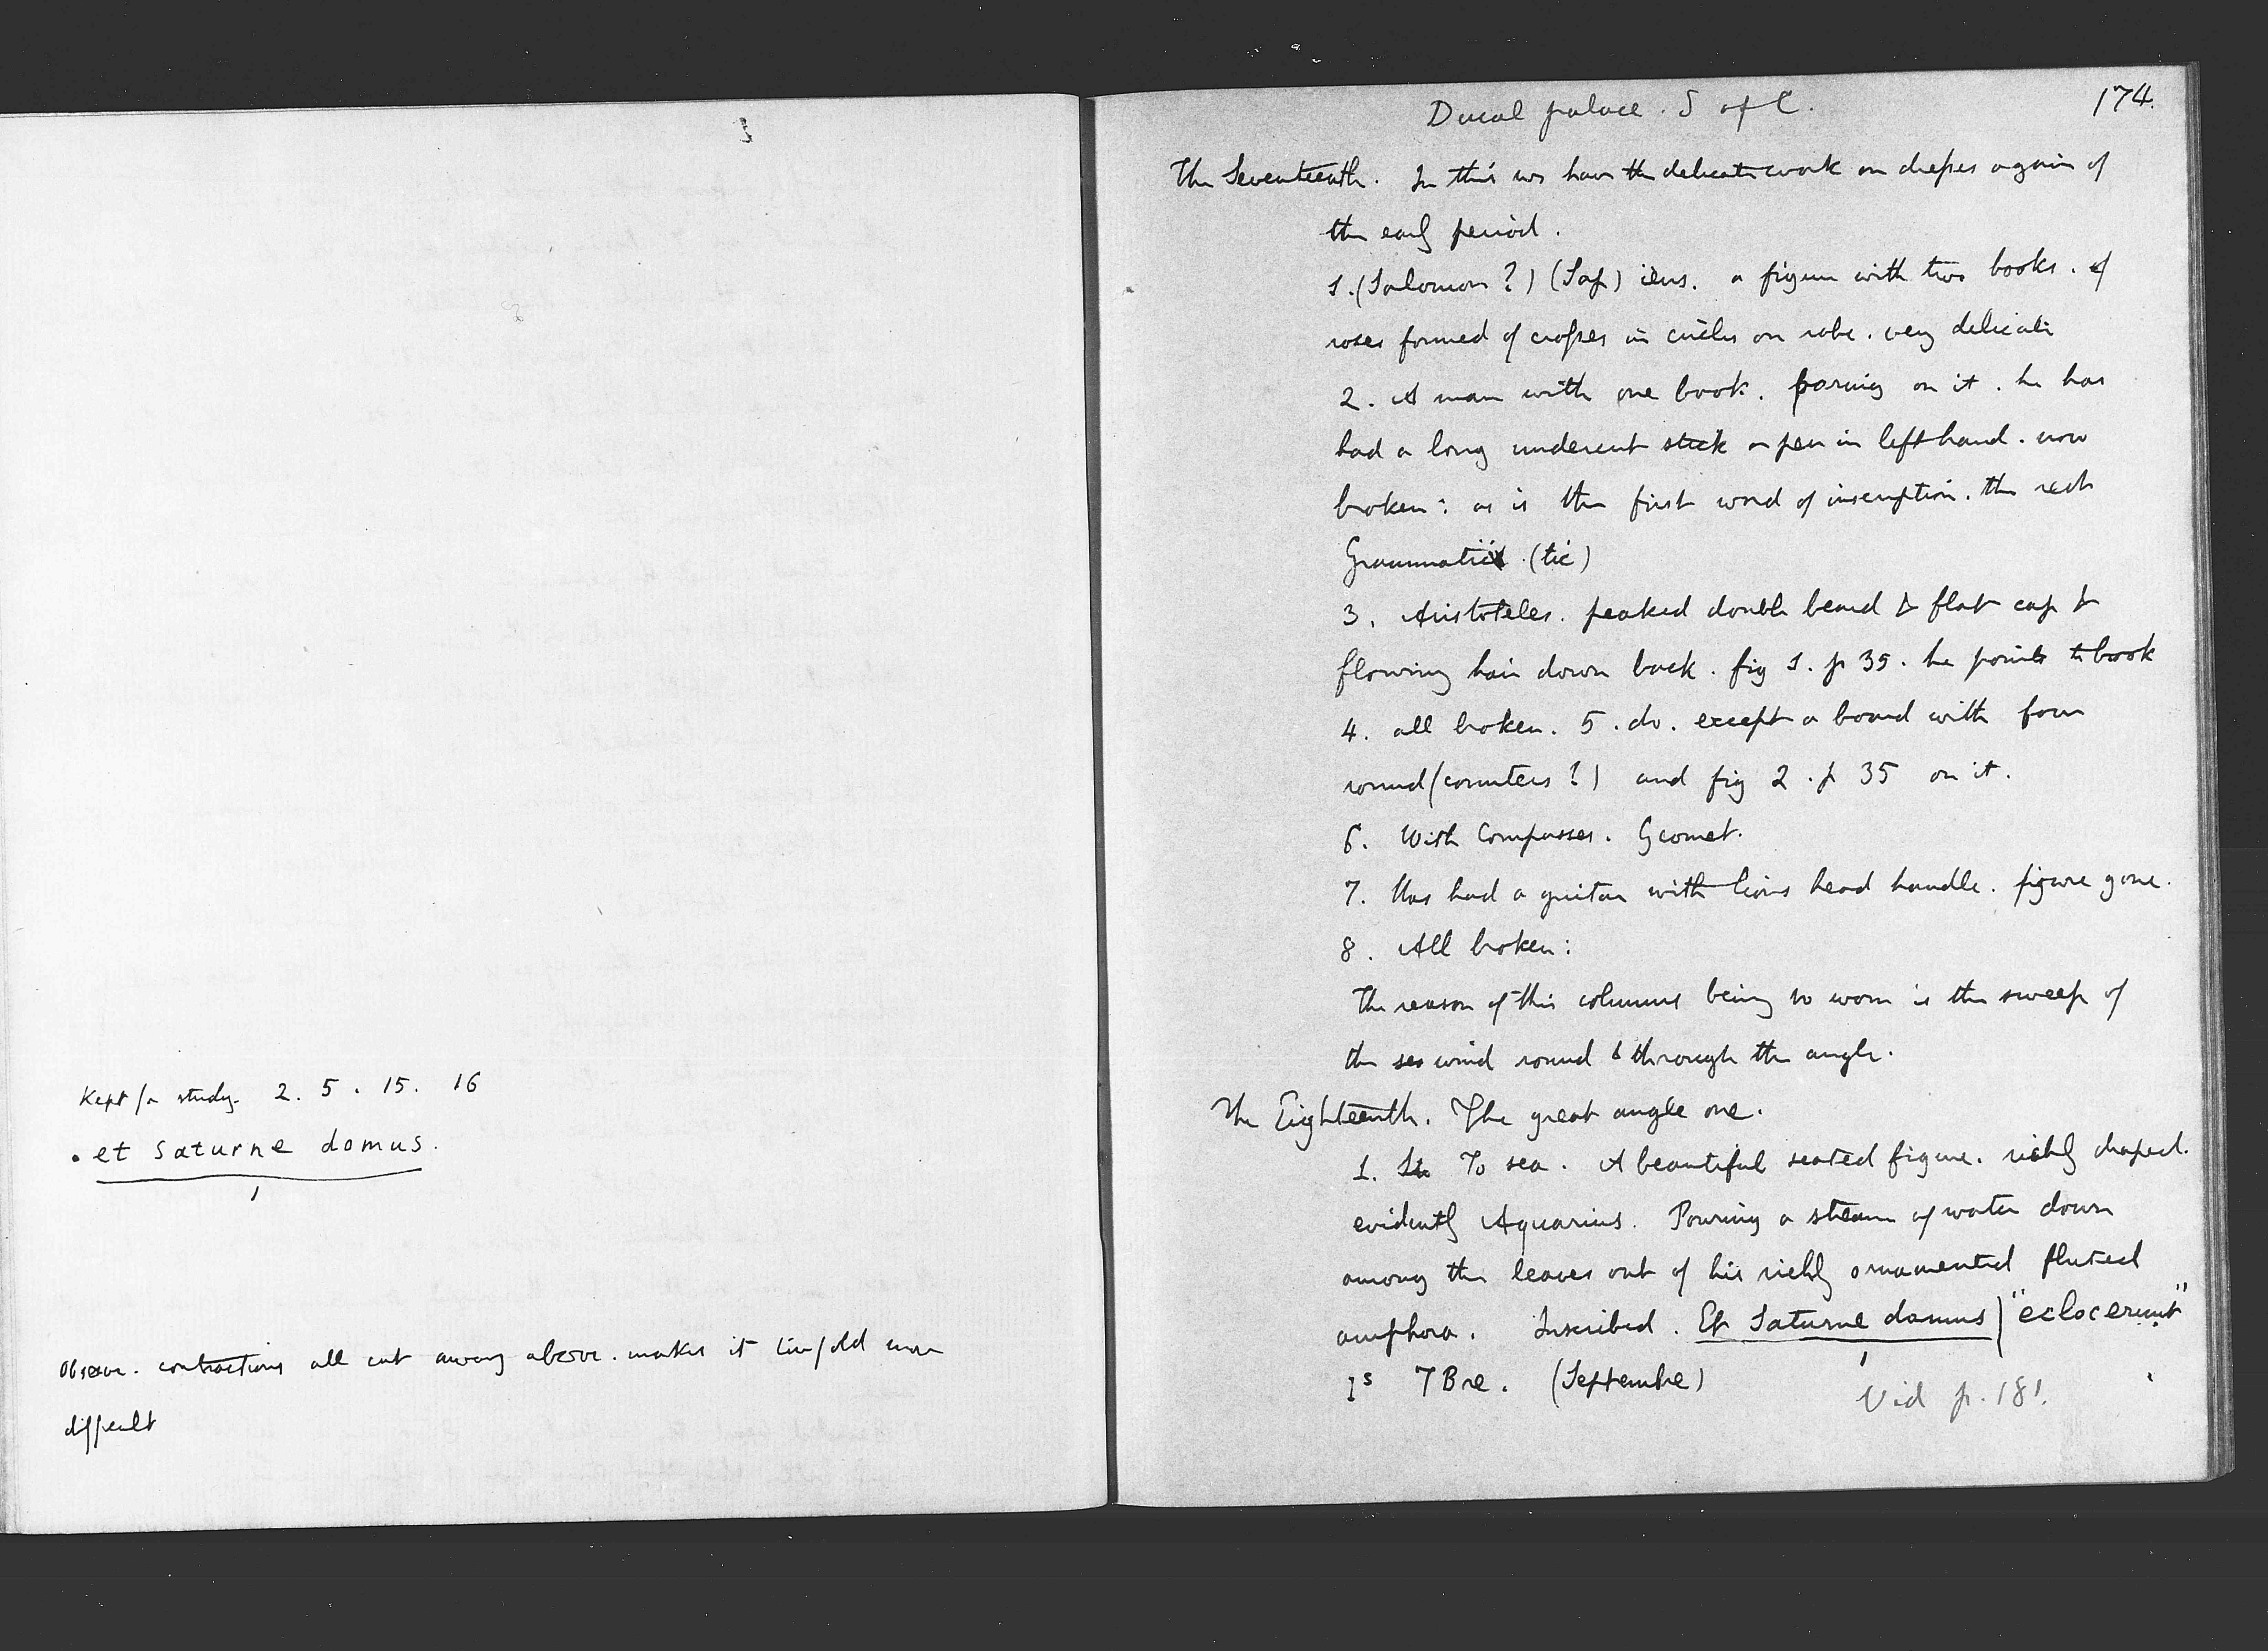 Kept for study. 2. 5. 15. 16
et Saturne domus.
Observe. contractions all cut away above. makes it tenfold more
difficult
Ducal palace. S of C.
174.
The Seventeenth. In this we have the delicate work on dresses again of
the early period.
1. (Salomon?) (Sap) iens. a figure with two books. of
roses formed of crosses in circles on robe. very delicate
2. A man with one book. poring on it. he has
had a long undercut stick or pen in left hand. now
broken: as is the first word of inscription. the rest
Grammatic (tic)
3. Aristoteles. peaked double beard & flat cap &
flowing hair down back. fig 1. p 35. he points to book
4. all broken. 5. do. except a board with four
round (counters?) and fig 2. p 35 on it.
6. With Compasses. Geomet.
7. Has had a guitar with lions head handle. figure gone.
8. All broken:
The reason of this columns being so worn is the sweep of
the sea wind round & through the angle.
The Eighteenth. The great angle one.
1. To sea. A beautiful seated figure. richly draped.
evidently Aquarius. Pouring a stream of water down
among the leaves out of his richly ornamented fluted
amphora. Inscribed. Et Saturne domus) "eclocerunt"
1s 7Bre. (Septembre)
Vid p. 181.